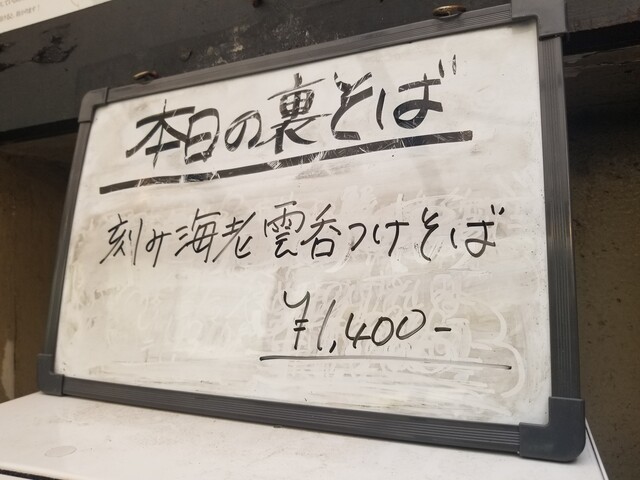 本日の裏そば
刻み海老雲呑つけそば
¥1,400-